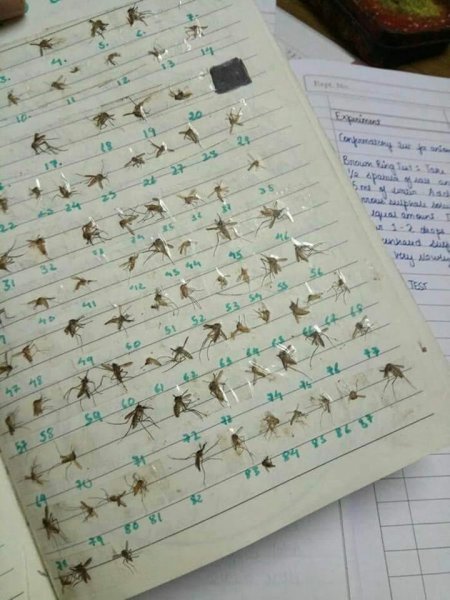 3. 4. 5. 6. 7.
10 11 12 13 14
17. 18 19 20
22 23 24 25 26 27 28 29
31 32 33 34 35 36 37 38
40 41 42 43 44 45 46
47 48 49 50 51 52 53 54 55 56
57 58 59 60 61 62 63 64 65 66 67 68
69 70 71 72 73 74 75 76 77
78 79 80 81 82 83 84 85 86 87
Expt. No.
Experiment
Confirmatory test for
Brown Ring Test : Take
spatula of salt
5 ml of water. Add
sulphate
equal amount
1-2 drops
Very slowly
TEST